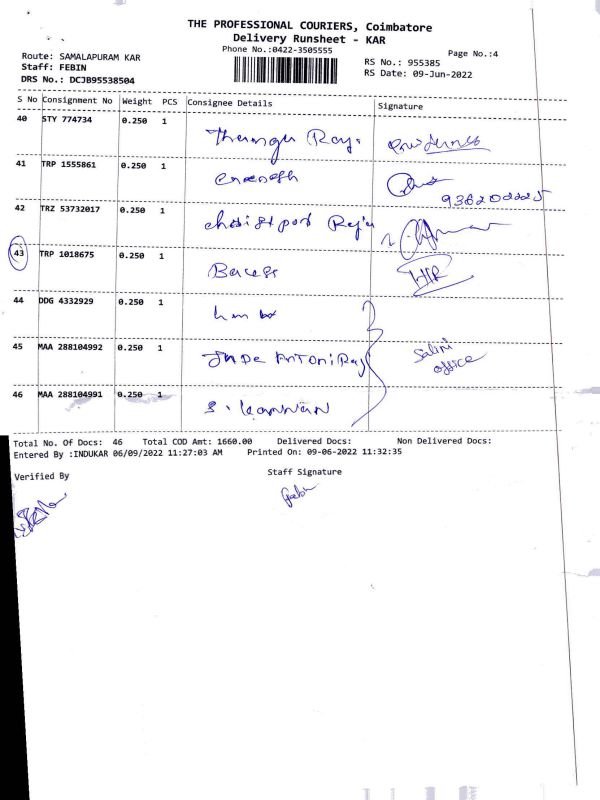 THE PROFESSIONAL COURIERS, Coimbatore
Delivery Runsheet - KAR
Phone No.:0422-3505555
Page No.:4
Route: SAMALAPURAM KAR
Staff: FEBIN
DRS No.: DCJB95538504
RS No.: 955385
RS Date: 09-Jun-2022
S No Consignment No Weight PCS Consignee Details Signature
40 STY 774734 0.250 1
41 TRP 1555861 0.250 1
42 TRZ 53732017 0.250 1
43 TRP 1018675 0.250 1
44 DDG 4332929 0.250 1
45 MAA 288104992 0.250 1 Salini
office
46 MAA 288104991 0.250 1 S. Kannan
Total No. Of Docs: 46 Total COD Amt: 1660.00 Delivered Docs: Non Delivered Docs:
Entered By :INDUKAR 06/09/2022 11:27:03 AM Printed On: 09-06-2022 11:32:35
Verified By
Staff Signature